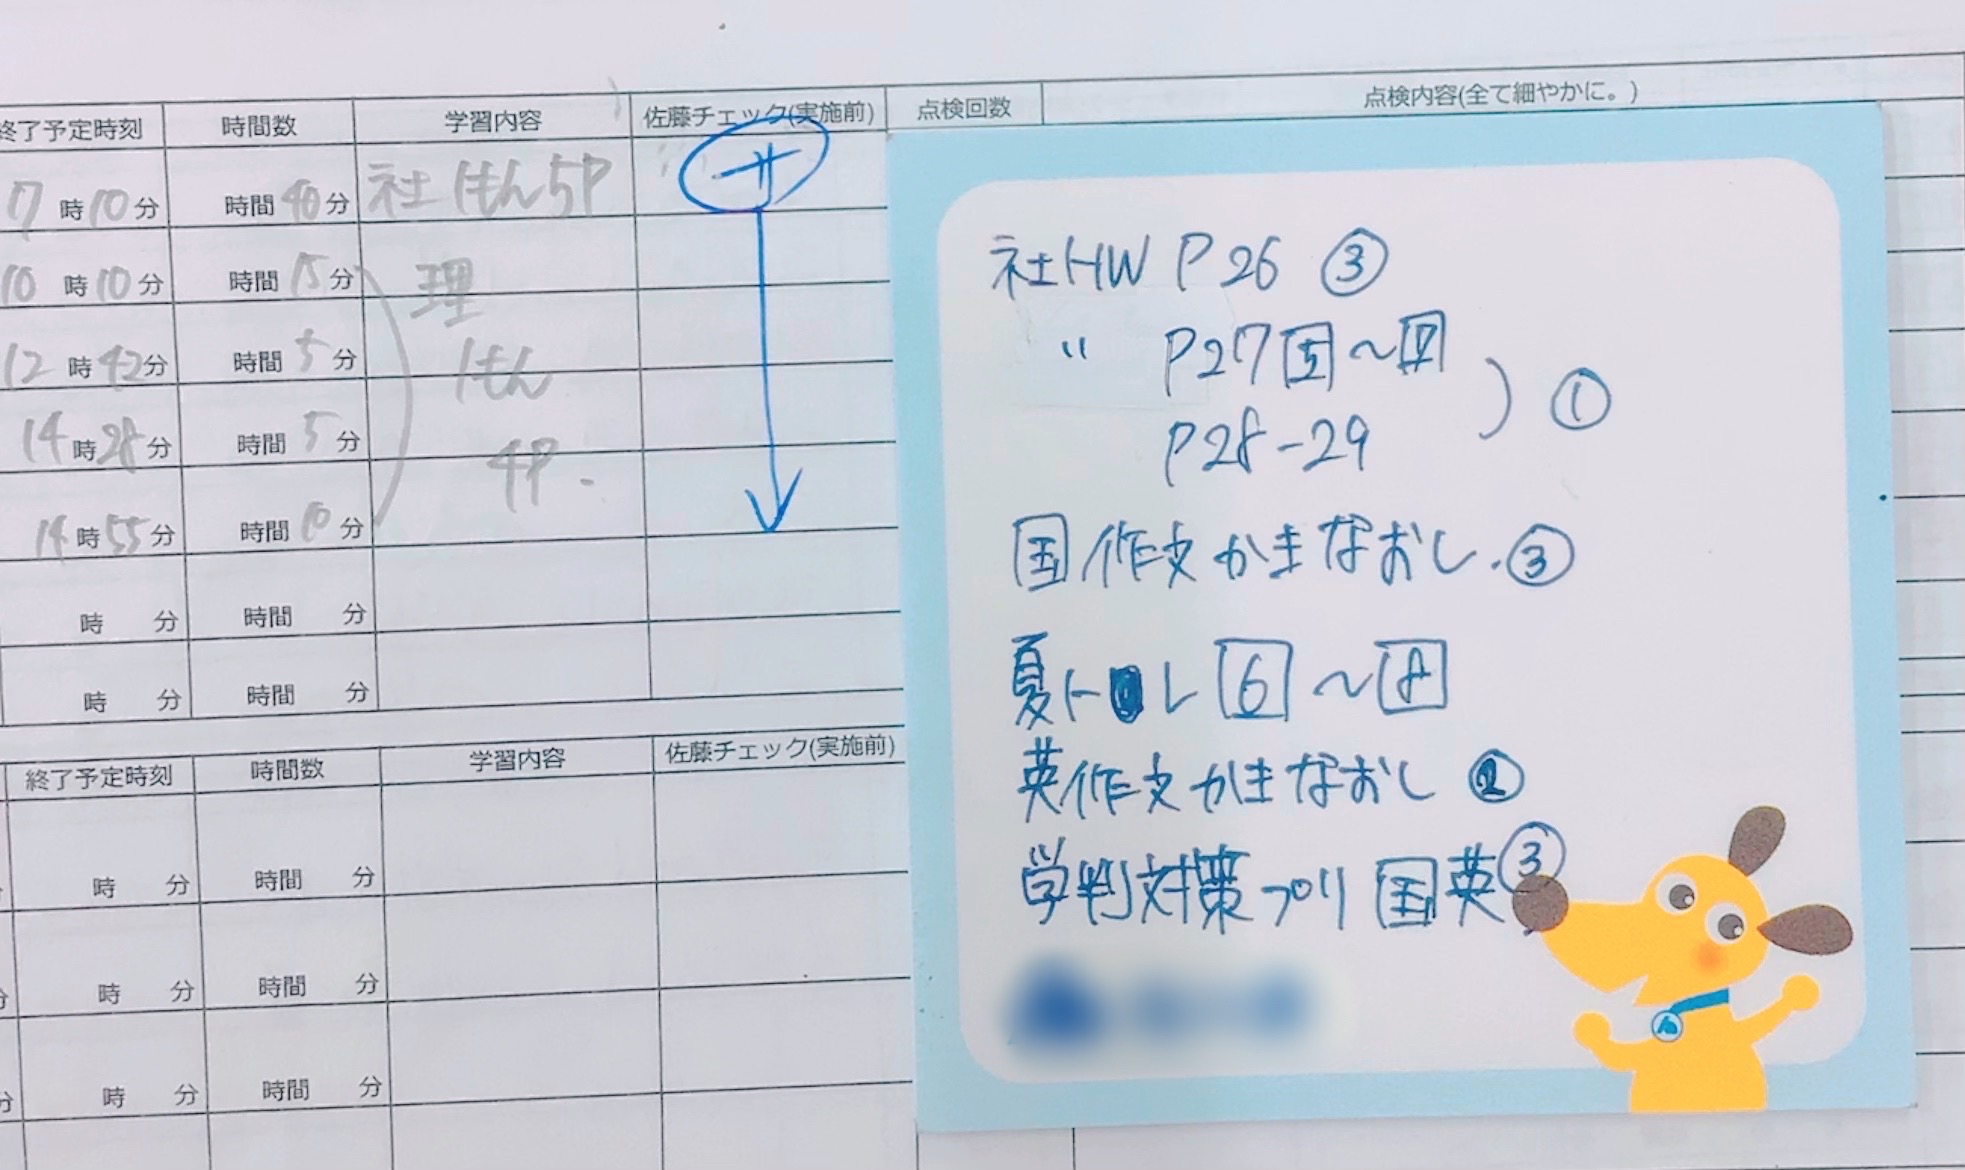 終了予定時刻 時間数 学習内容 佐藤チェック(実施前) 点検回数 点検内容(全て細やかに。)
17時10分 時間40分 社 けもん5P サ
10時10分 時間15分 理
12時42分 時間5分 けもん
14時28分 時間5分 4P.
14時55分 時間10分
時 分 時間 分
時 分 時間 分
終了予定時刻 時間数 学習内容 佐藤チェック(実施前)
時 分 時間 分
時 分 時間 分
分 時 分 時間 分
社HW P26 ③
〃 P27 5~7
P28-29 ) ①
国作文かきなおし.③
夏トレ 6~8
英作文かきなおし ②
学判対策プリ 国英③